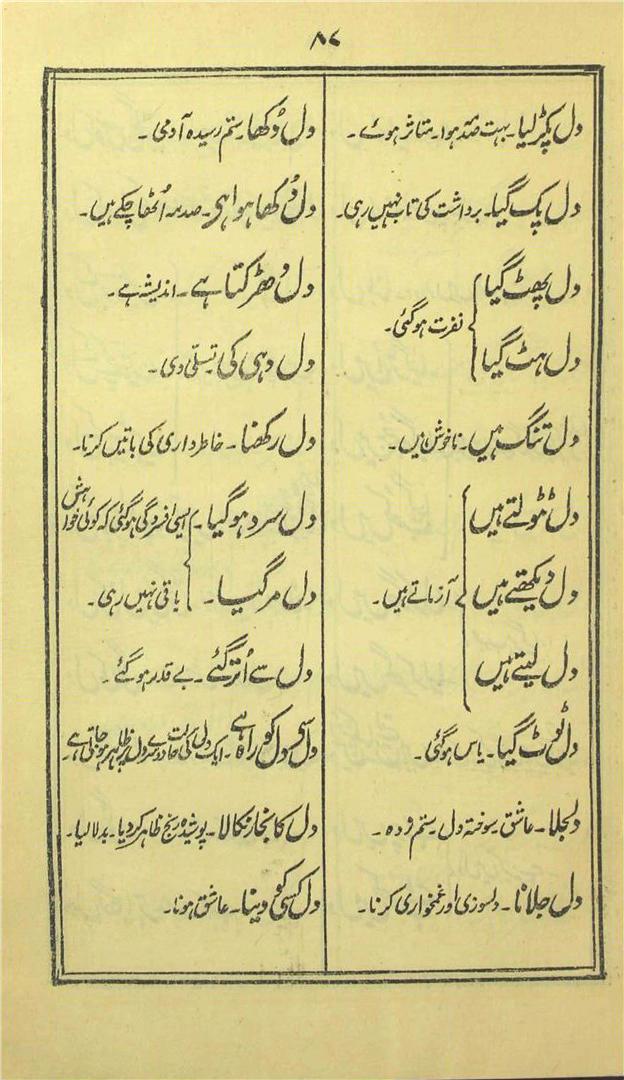 ۸۷
دل پکڑ لیا۔ بہت صدمہ ہوا۔ متاثر ہوئے۔
دل پک گیا۔ برداشت کی تاب نہیں رہی۔
دل پھٹ گیا
نفرت ہوگئی۔
دل ہٹ گیا
دل تنگ ہیں۔ ناخوش ہیں۔
دل ٹٹولتے ہیں
دل دیکھتے ہیں
آزماتے ہیں۔
دل لیتے ہیں
دل ٹوٹ گیا۔ یاس ہوگئی۔
دلجلا۔ عاشق سوختہ دل۔ ستم زدہ۔
دل جلانا۔ دلسوزی اور غمخواری کرنا۔
دل دُکھا۔ ستم رسیدہ آدمی۔
دل دُکھا ہوا ہی۔ صدمہ اُٹھا چکے ہیں۔
دل دھڑکتا ہے۔ اندیشہ ہے۔
دل دہی کی۔ تسلی دی۔
دل رکھنا۔ خاطرداری کی باتیں کرنا۔
دل سرد ہوگیا۔
ایسی افسردگی ہوگئی کہ کوئی خواہش
دل مرگیا۔
باقی نہیں رہی۔
دل سے اُتر گئے۔ بے قدر ہوگئے۔
دل سی دل کو راہ ہے۔ ایک دل کی دوسرے دل پر ظاہر ہوجاتی ہے۔
دل کا بخار نکالا۔ پوشیدہ رنج ظاہر کردیا۔ بدلا لیا۔
دل کسی کو دینا۔ عاشق ہونا۔